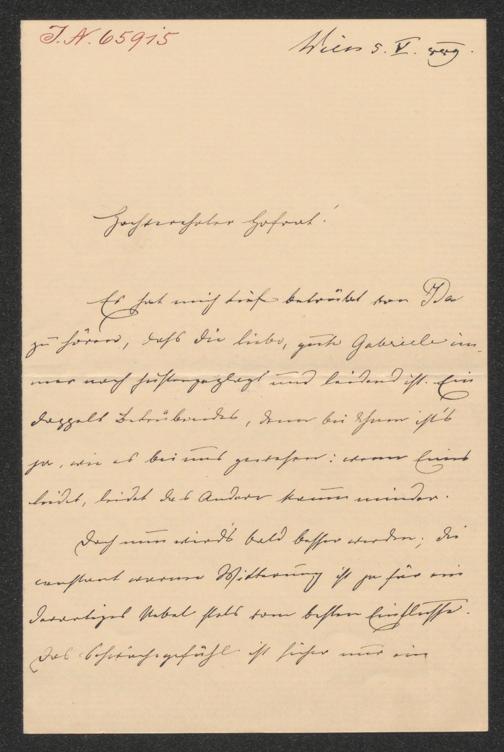 J.N. 65915
Wien 5. V. 889.
Hochverehrter Hofrat!
Es hat mich tief betrübt von Ida
zu hören, daß die liebe, gute Gabriele im-
mer noch hustengeplagt und leidend ist. Ein
doppelt Betrübendes, denn bei Ihnen ist's
ja, wie es bei uns gewesen: wenn Eines
leidet, leidet das Andere kaum minder.
Doch nun wird's bald besser werden; die
constant warme Witterung ist ja für ein
derartiges Uebel stets vom besten Einflusse.
Das Schwächegefühl ist sicher nur ein